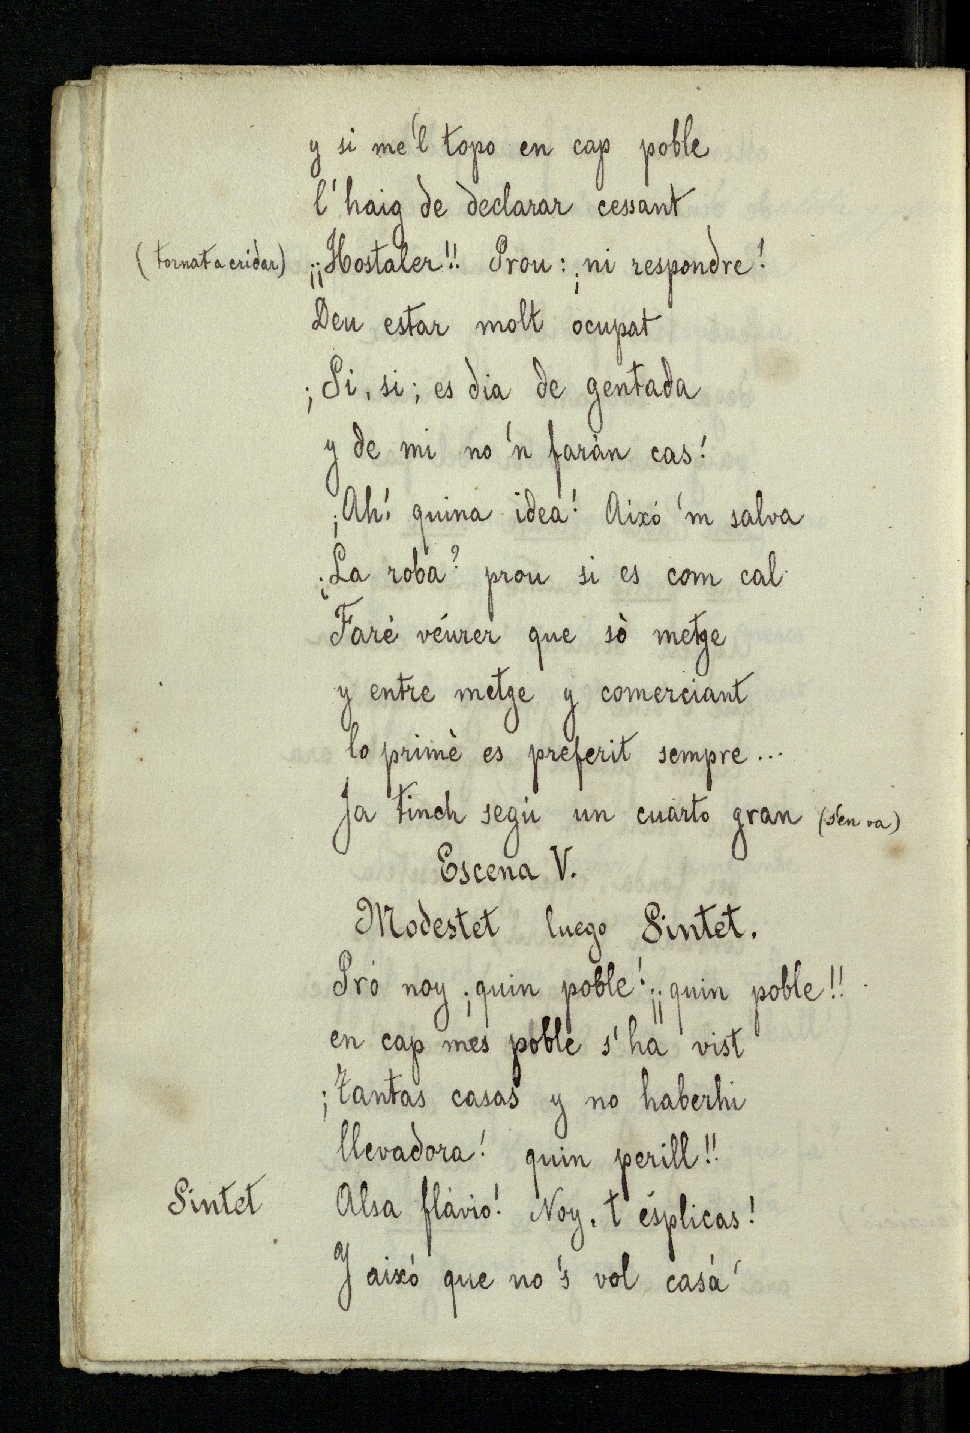 y si me'l topo en cap poble
l'haig de declarar cessant
(tornat a cridar) ¡¡Hostaler!! Prou: ¡ni respondre!
Deu estar molt ocupat
¡Si, si; es dia de gentada
y de mi no 'n farán cas!
¡Ah! quina idea! Aixó 'm salva
¿La roba? prou si es com cal
Faré véurer que só metge
y entre metge y comerciant
lo primè es preferit sempre...
Ja tinch segú un cuarto gran (s'en va)
Escena V.
Modestet luego Sintet.
Pró noy ¡quin poble! ¡¡quin poble!!
en cap mes poble s'ha vist
¡Tantas casas y no haberhi
llevadora! quin perill!!
Sintet Alsa flávio! Noy, t'ésplicas!
Y aixó que no 's vol casá!